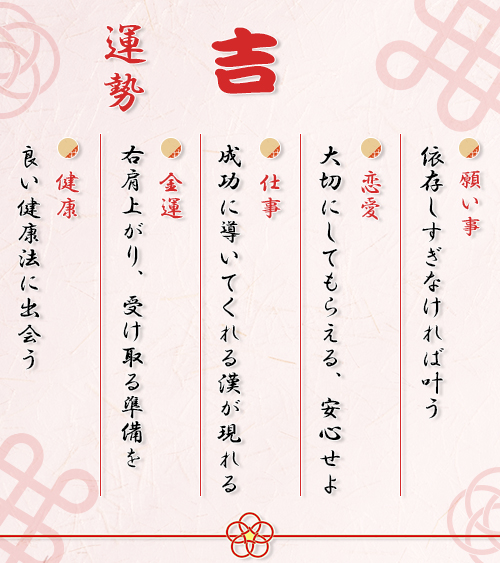 吉
運勢
願い事
依存しすぎなければ叶う
恋愛
大切にしてもらえる、安心せよ
仕事
成功に導いてくれる漢が現れる
金運
右肩上がり、受け取る準備を
健康
良い健康法に出会う